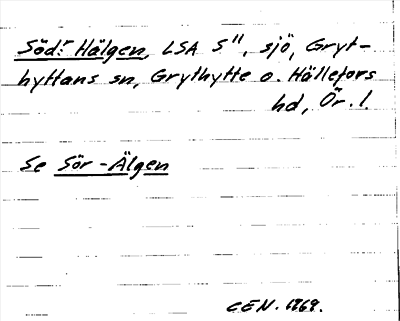 Söd:r Hälgen, LSA S", sjö, Gryt-
hyttans sn, Grythytte o. Hällefors
hd, Ör. l.
Se Sör-Älgen
C.E.N. 1969.